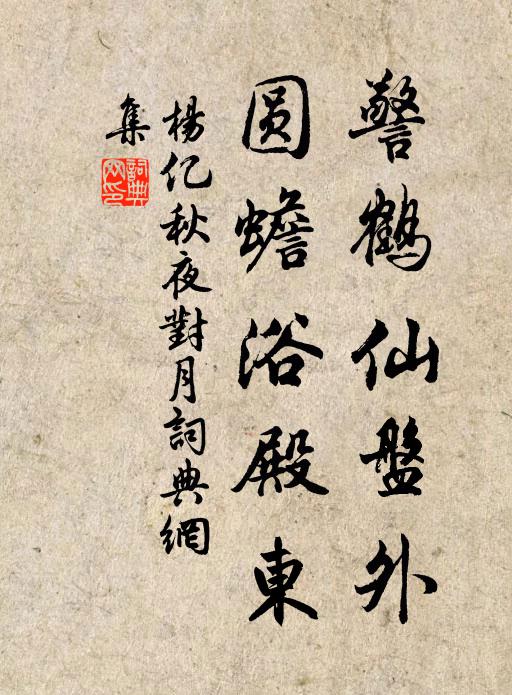 警鶴仙盤外
圓蟾浴殿東
楊億秋夜對月詞典網
集
詞典網印